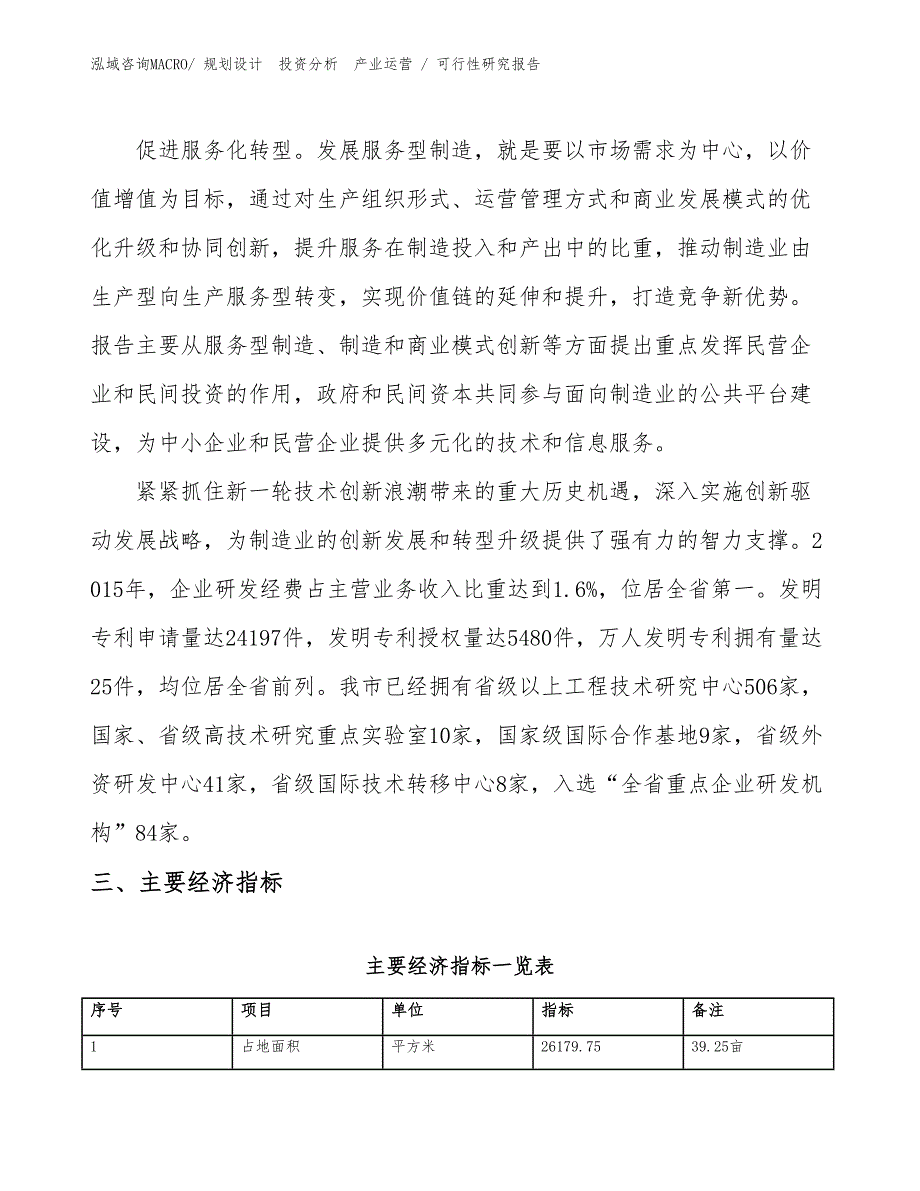 泓域咨询MACRO/ 规划设计  投资分析  产业运营 / 可行性研究报告
促进服务化转型。发展服务型制造，就是要以市场需求为中心，以价
值增值为目标，通过对生产组织形式、运营管理方式和商业发展模式的优
化升级和协同创新，提升服务在制造投入和产出中的比重，推动制造业由
生产型向生产服务型转变，实现价值链的延伸和提升，打造竞争新优势。
报告主要从服务型制造、制造和商业模式创新等方面提出重点发挥民营企
业和民间投资的作用，政府和民间资本共同参与面向制造业的公共平台建
设，为中小企业和民营企业提供多元化的技术和信息服务。
紧紧抓住新一轮技术创新浪潮带来的重大历史机遇，深入实施创新驱
动发展战略，为制造业的创新发展和转型升级提供了强有力的智力支撑。2
015年，企业研发经费占主营业务收入比重达到1.6%，位居全省第一。发明
专利申请量达24197件，发明专利授权量达5480件，万人发明专利拥有量达
25件，均位居全省前列。我市已经拥有省级以上工程技术研究中心506家，
国家、省级高技术研究重点实验室10家，国家级国际合作基地9家，省级外
资研发中心41家，省级国际技术转移中心8家，入选“全省重点企业研发机
构”84家。
三、主要经济指标
主要经济指标一览表
序号 项目 单位 指标 备注
1 占地面积 平方米 26179.75 39.25亩